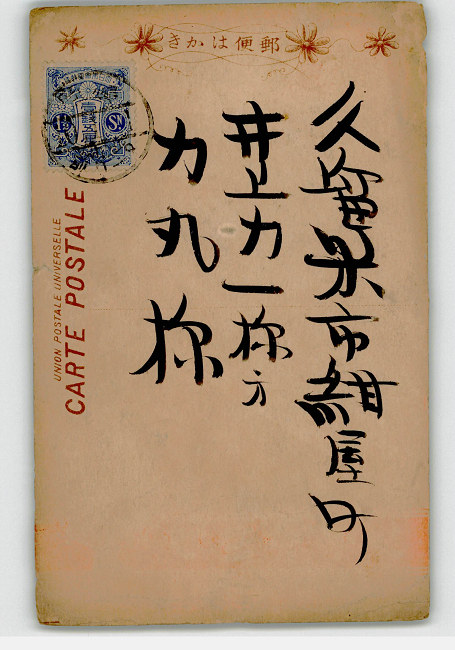 きかは便郵
久留米市紺屋町
井上力一様方
力丸様
UNION POSTALE UNIVERSELLE
CARTE POSTALE
1½
Sn